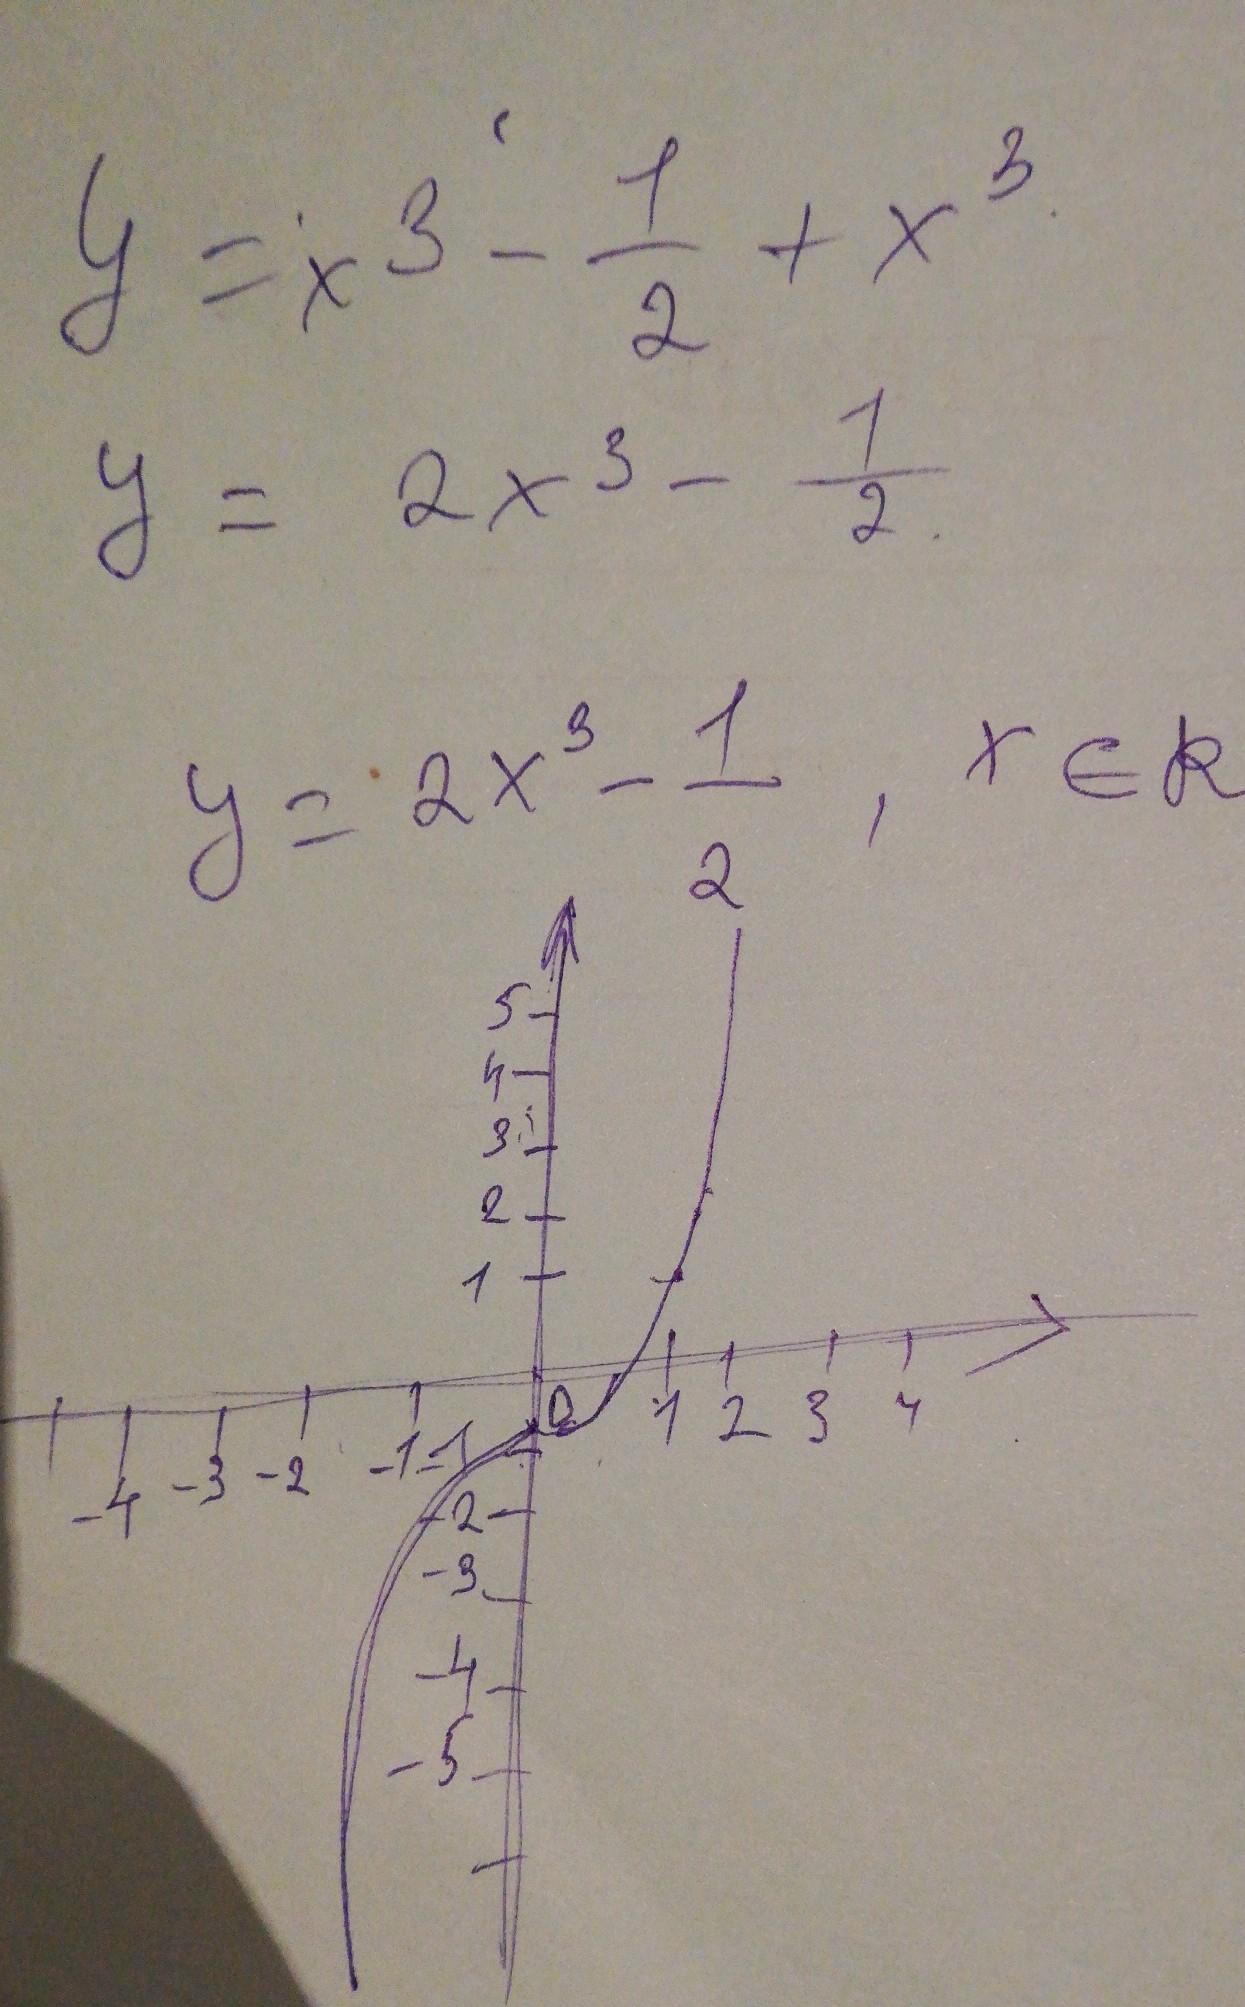 y = x³ - 1/2 + x³.
y = 2x³ - 1/2.
y = 2x³ - 1/2, x ∈ R
5
4
3
2
1
0
1 2 3 4
-4 -3 -2 -1
-1
-2
-3
-4
-5